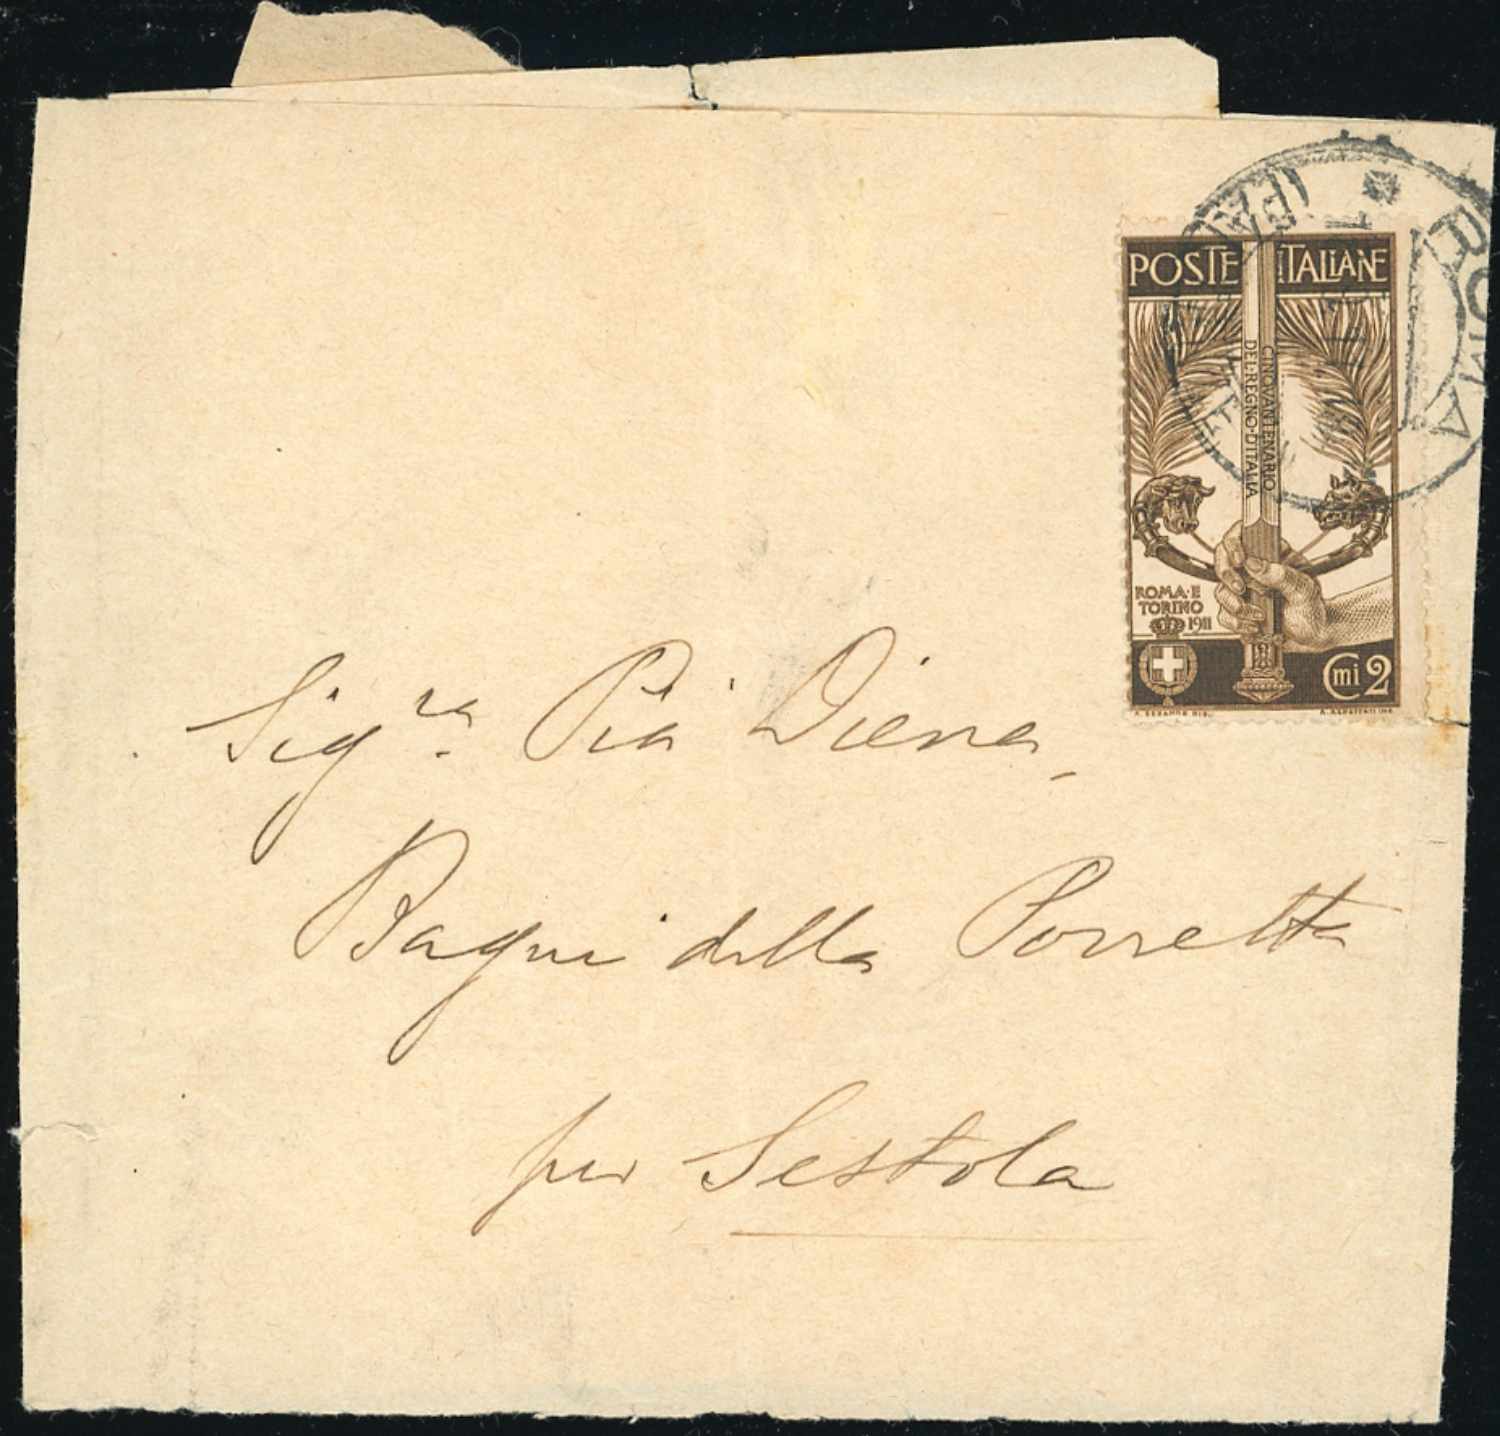 ROMA
POSTE ITALIANE
CINQVANTENARIO
DEL·REGNO·D'ITALIA
ROMA·E
TORINO
1911
Cmi 2
Sigra Pia Diena,
Bagni della Porretta
per Sestola